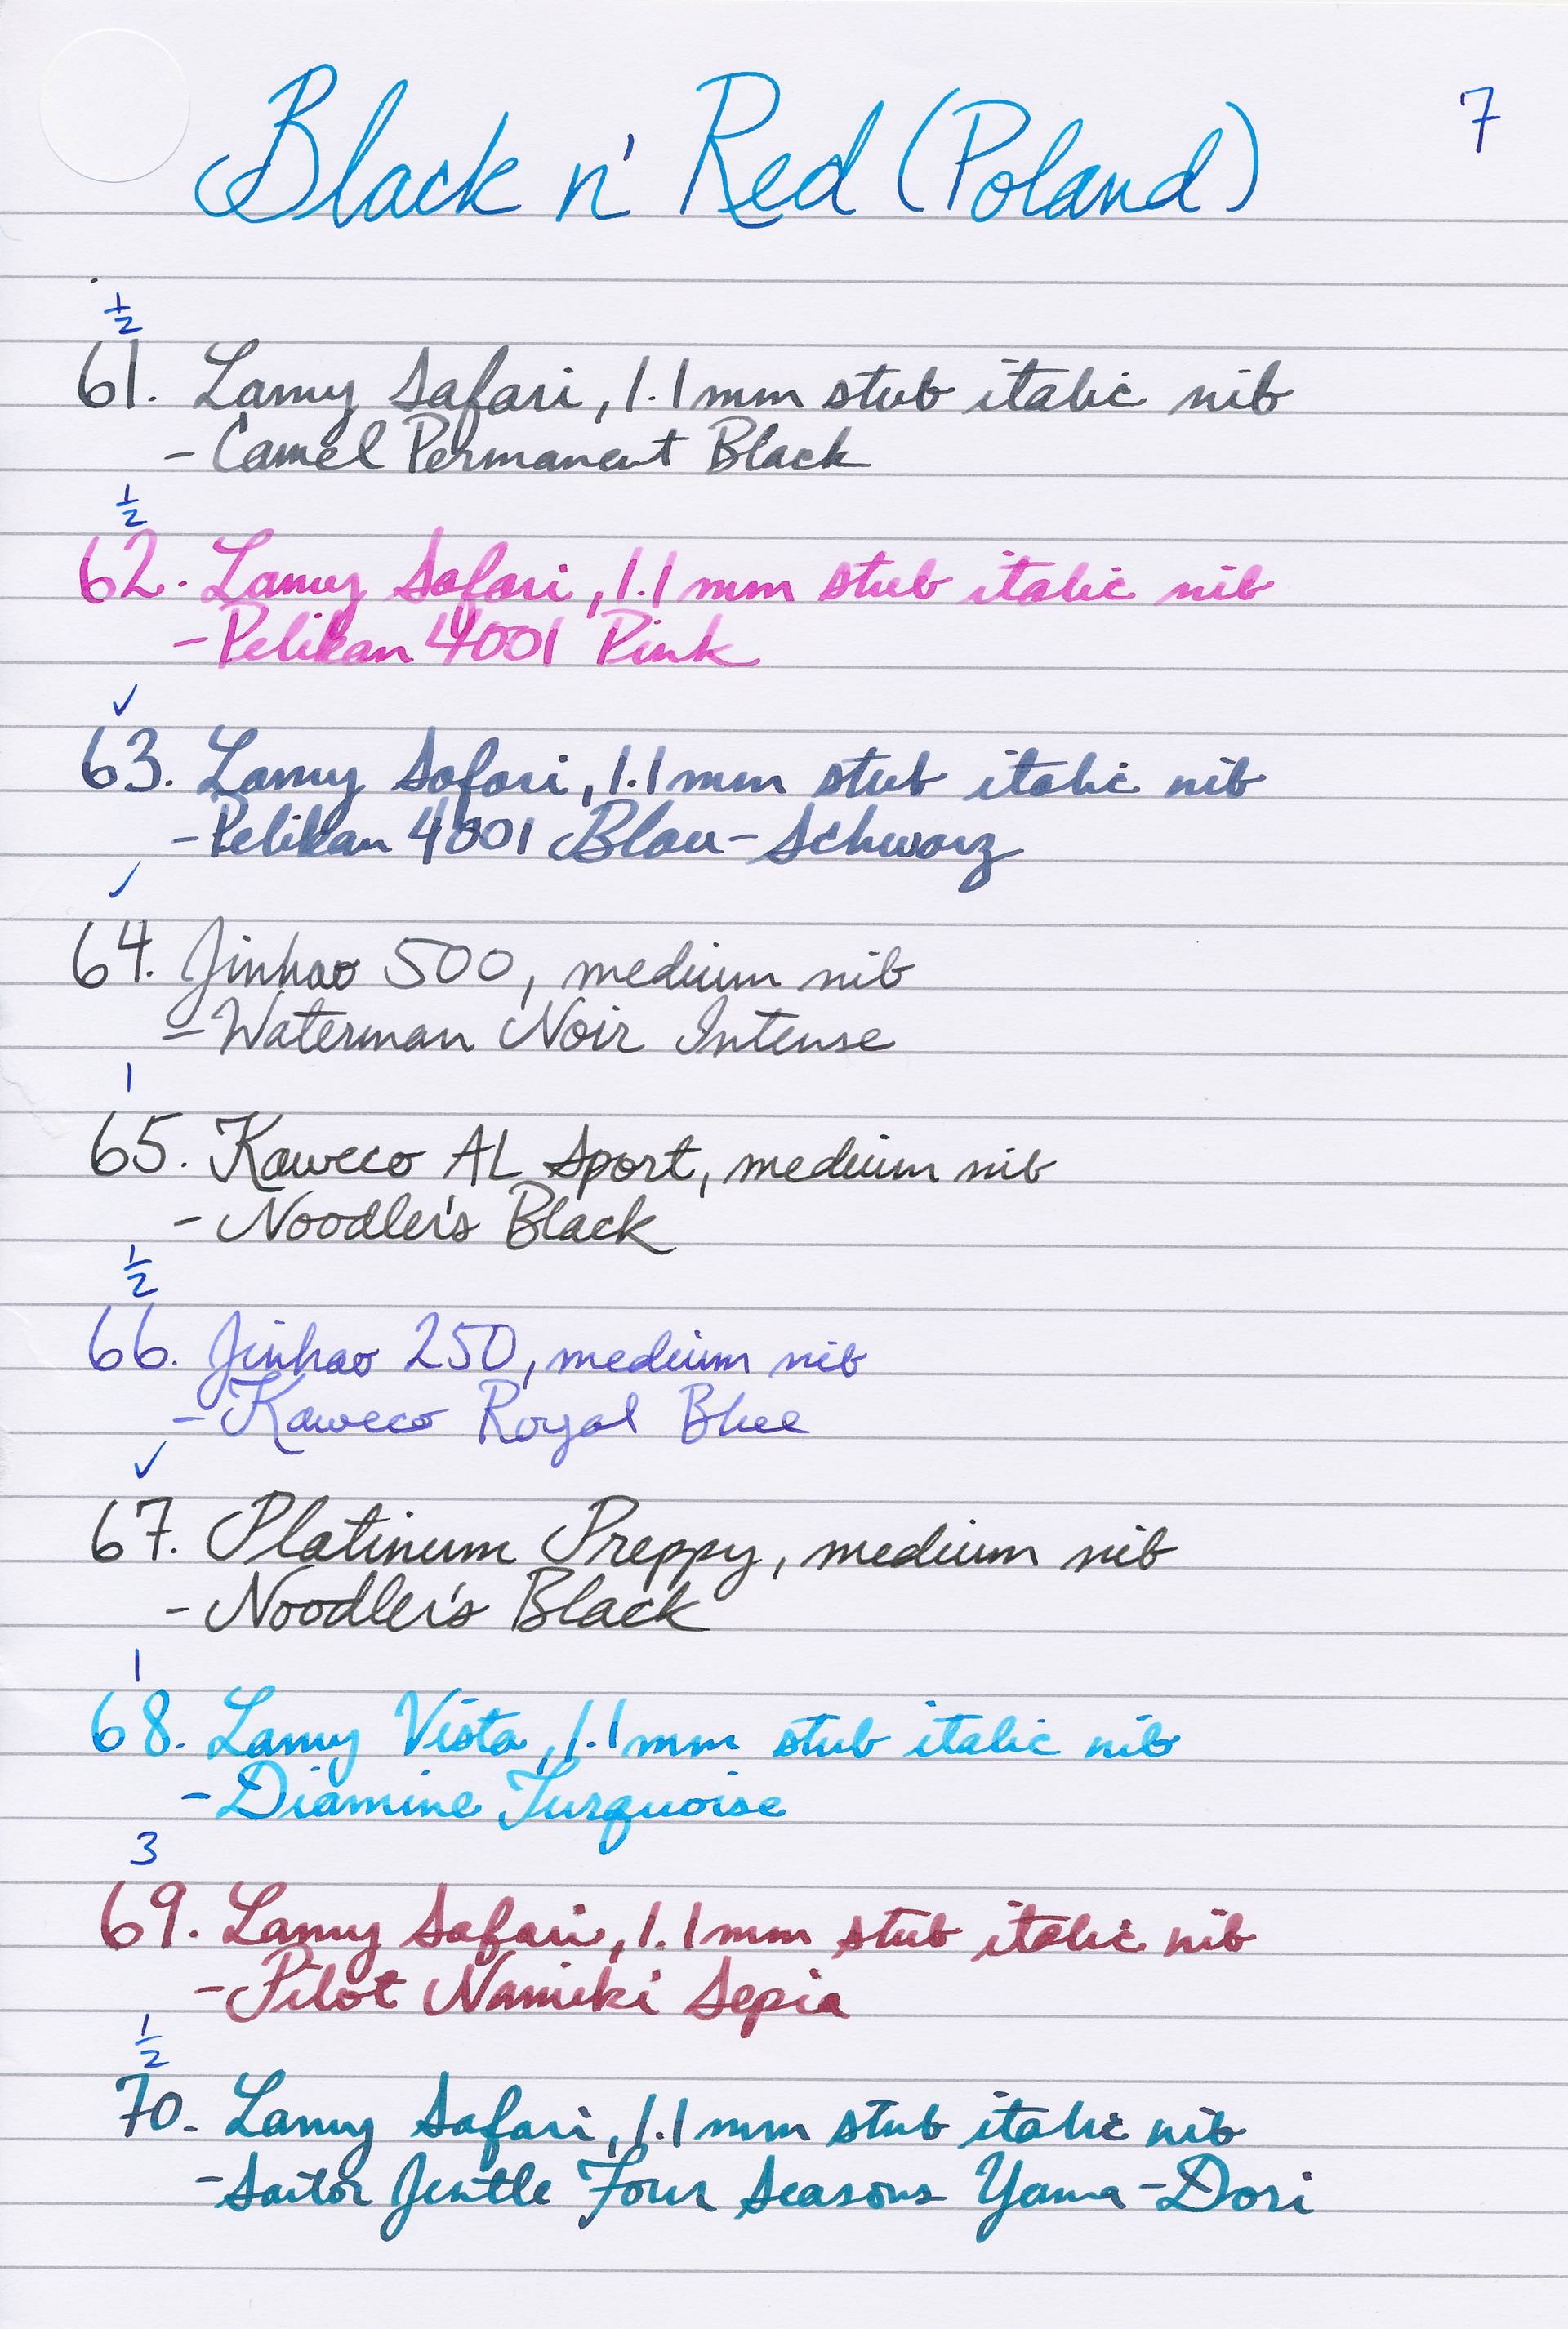 Black n' Red (Poland)
7
1/2
61. Lamy Safari, 1.1mm stub italic nib
- Camel Permanent Black
1/2
62. Lamy Safari, 1.1mm stub italic nib
- Pelikan 4001 Pink
✓
63. Lamy Safari, 1.1mm stub italic nib
- Pelikan 4001 Blau-Schwarz
✓
64. Jinhao 500, medium nib
- Waterman Noir Intense
1
65. Kaweco AL Sport, medium nib
- Noodler's Black
1/2
66. Jinhao 250, medium nib
- Kaweco Royal Blue
✓
67. Platinum Preppy, medium nib
- Noodler's Black
1
68. Lamy Vista, 1.1mm stub italic nib
- Diamine Turquoise
3
69. Lamy Safari, 1.1mm stub italic nib
- Pilot Namiki Sepia
1/2
70. Lamy Safari, 1.1mm stub italic nib
- Sailor Jentle Four Seasons Yama-Dori